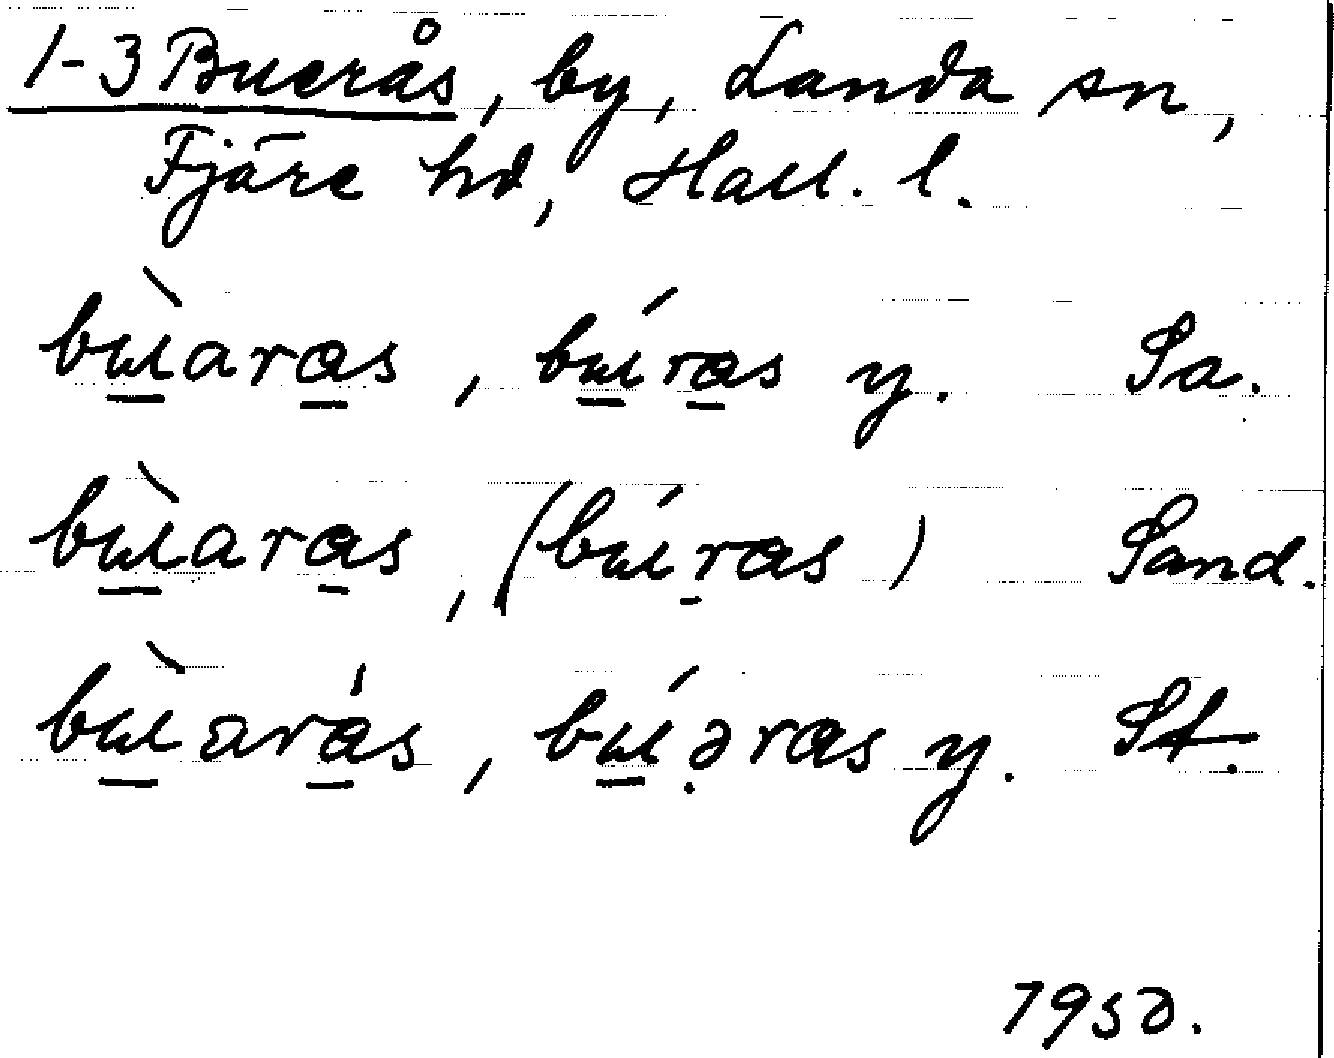 1-3 Buerås, by, Landa sn,
Fjäre hd, Hall. l.
bùaras, búras y. Sa.
bùaras, (búras) Sand.
bùarás, búəras y. St.
1950.